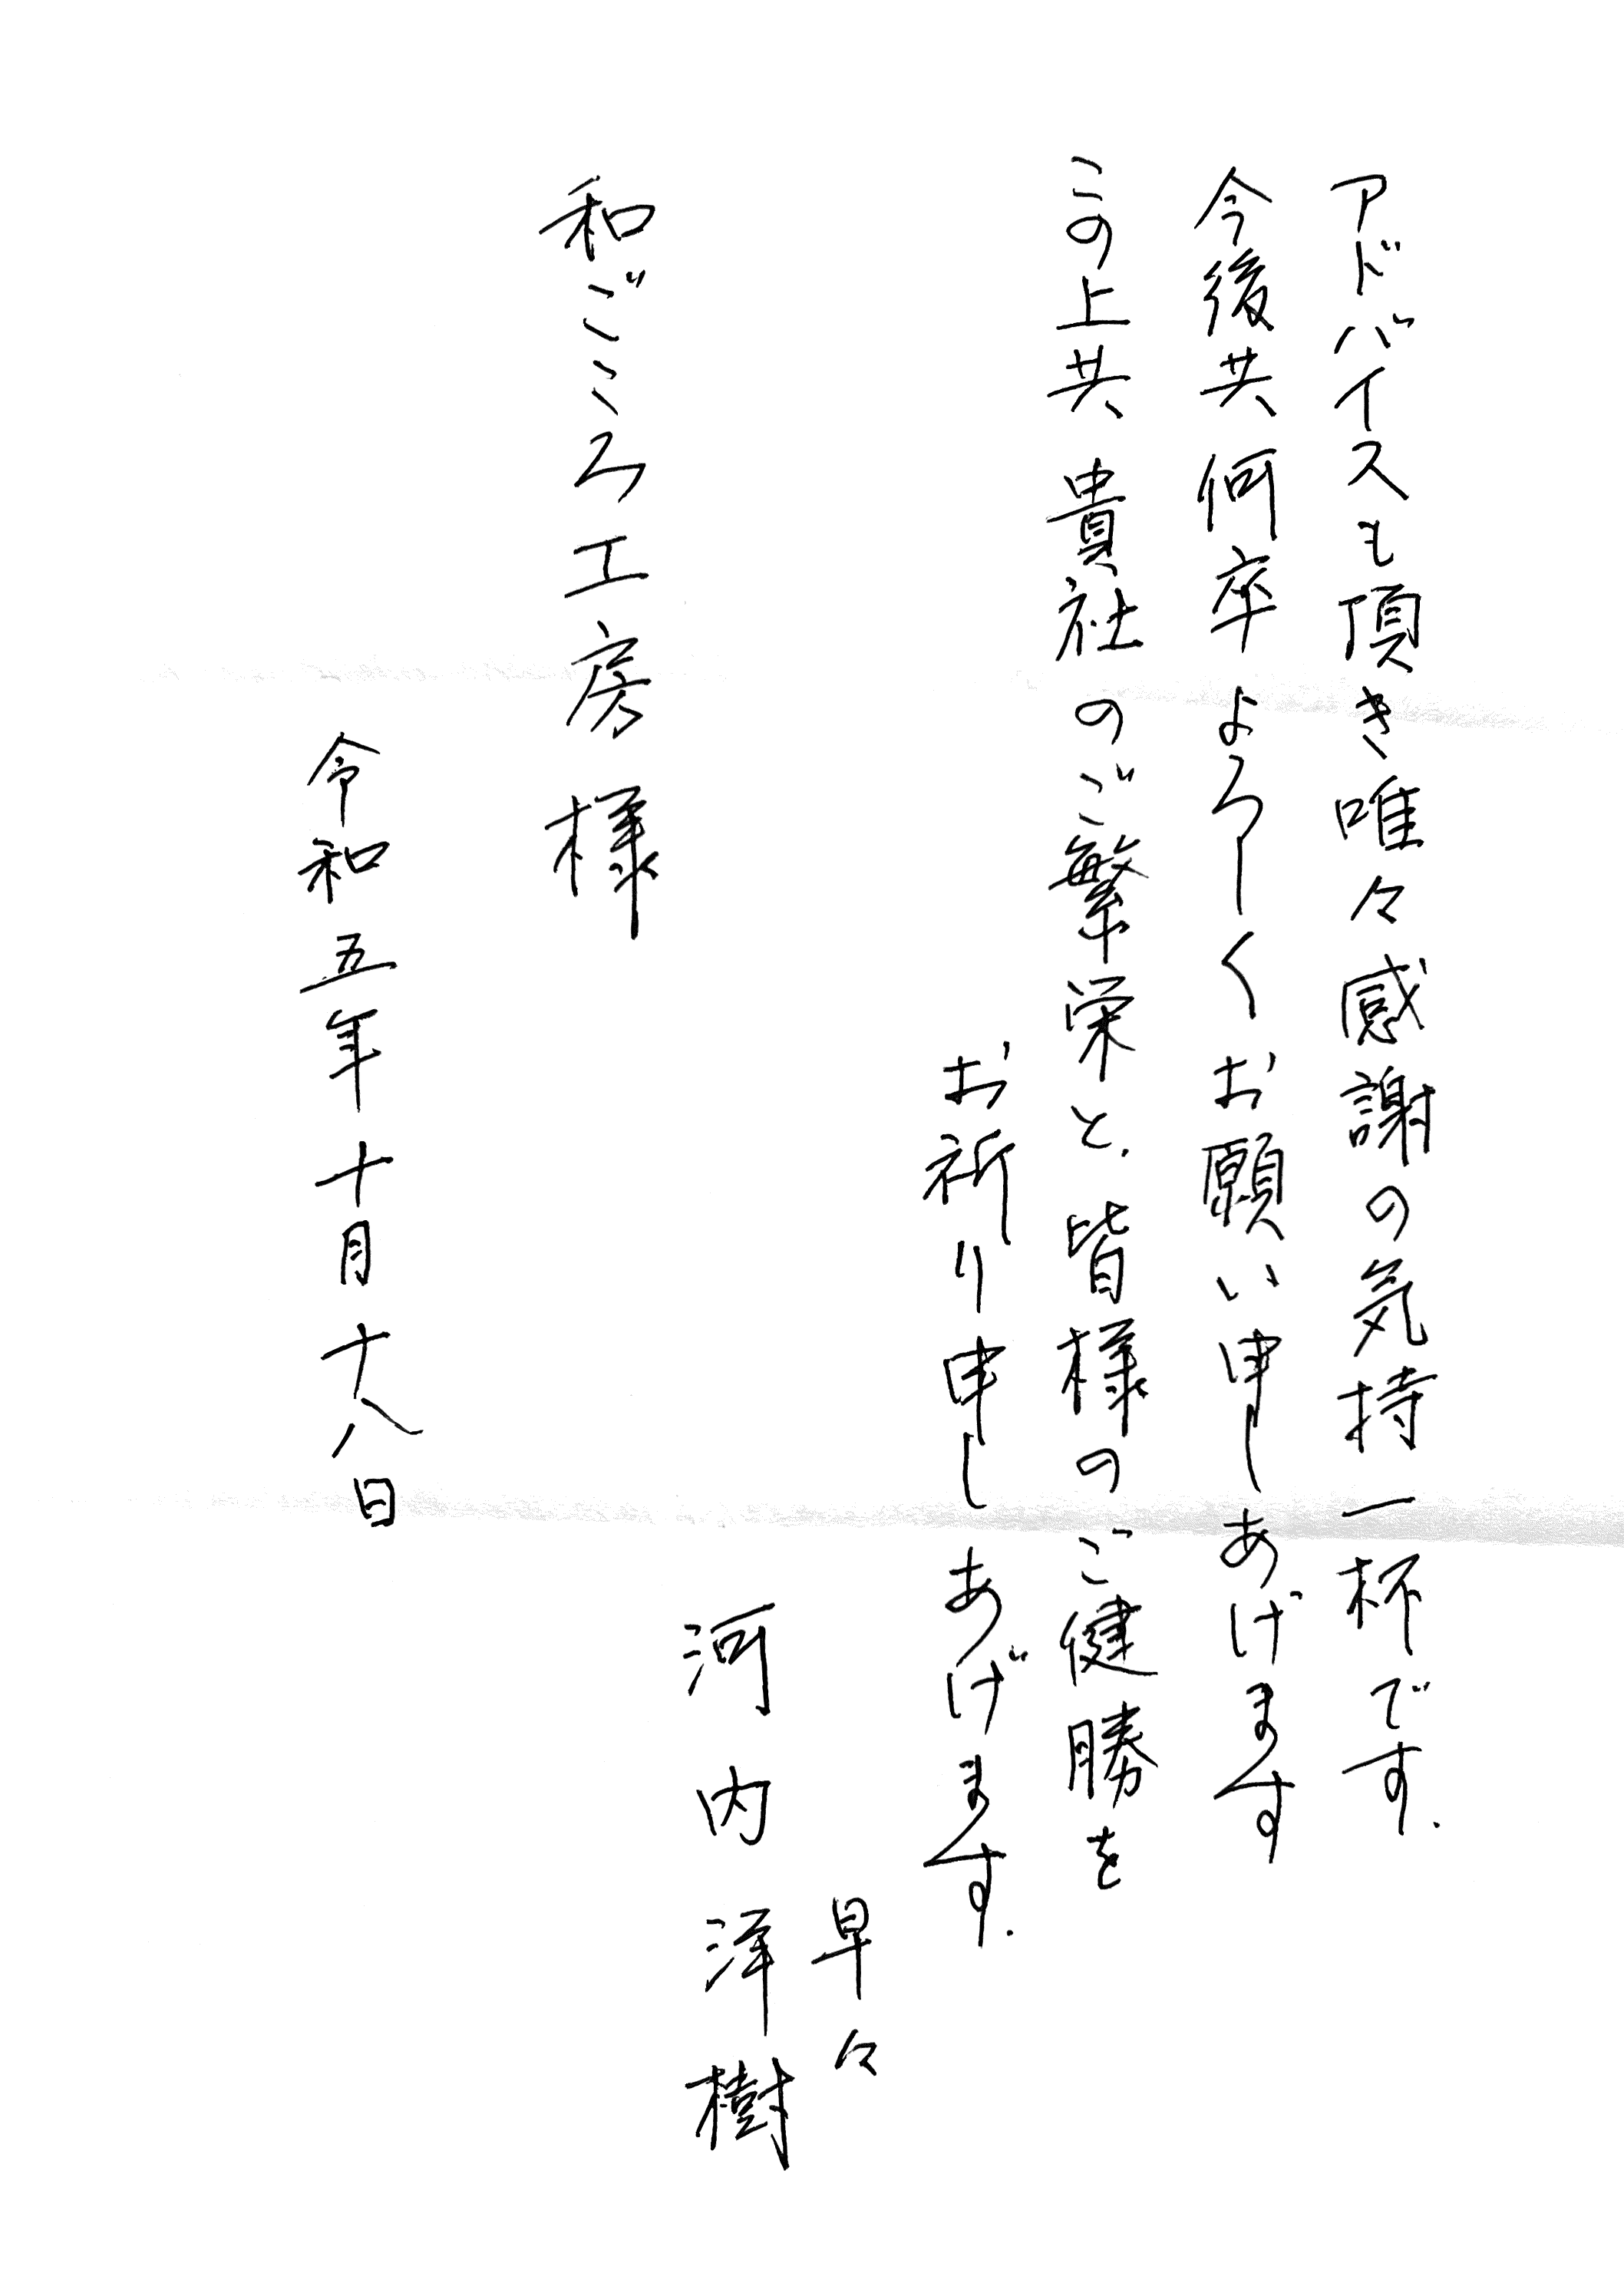 アドバイスも頂き唯々感謝の気持一杯です.
今後共何卒よろしくお願い申しあげます
この上共貴社のご繁栄と.皆様のご健勝を
お祈り申しあげます.
早々
河内洋樹
和ごころ工房様
令和五年十月十八日